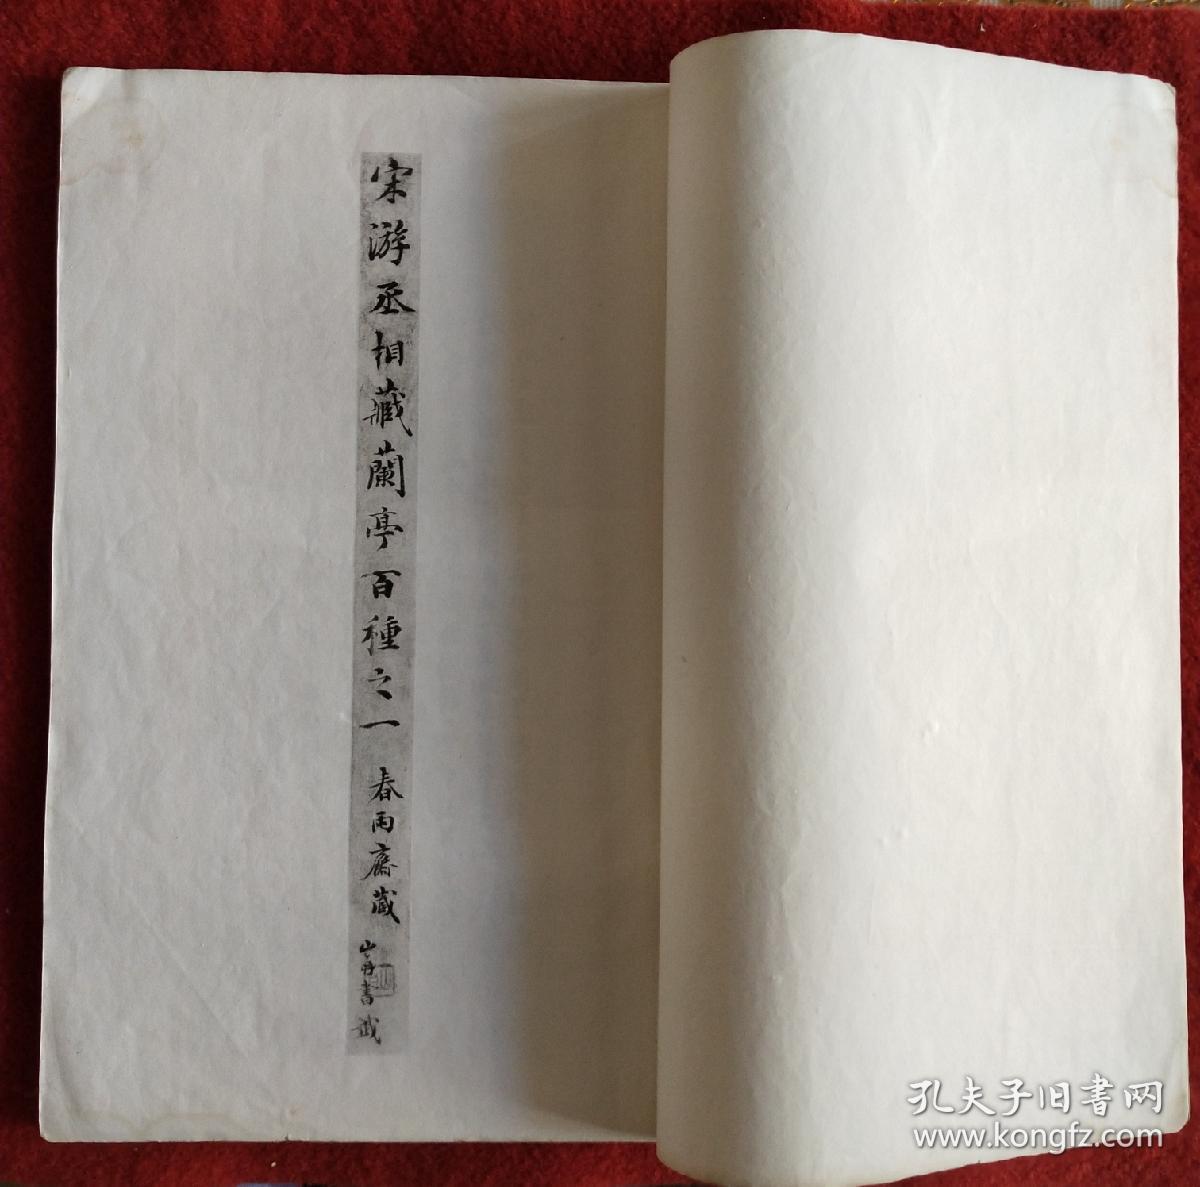 宋游丞相藏蘭亭百種之一 春雨齋藏
書籤
孔夫子旧書网
www.kongfz.com